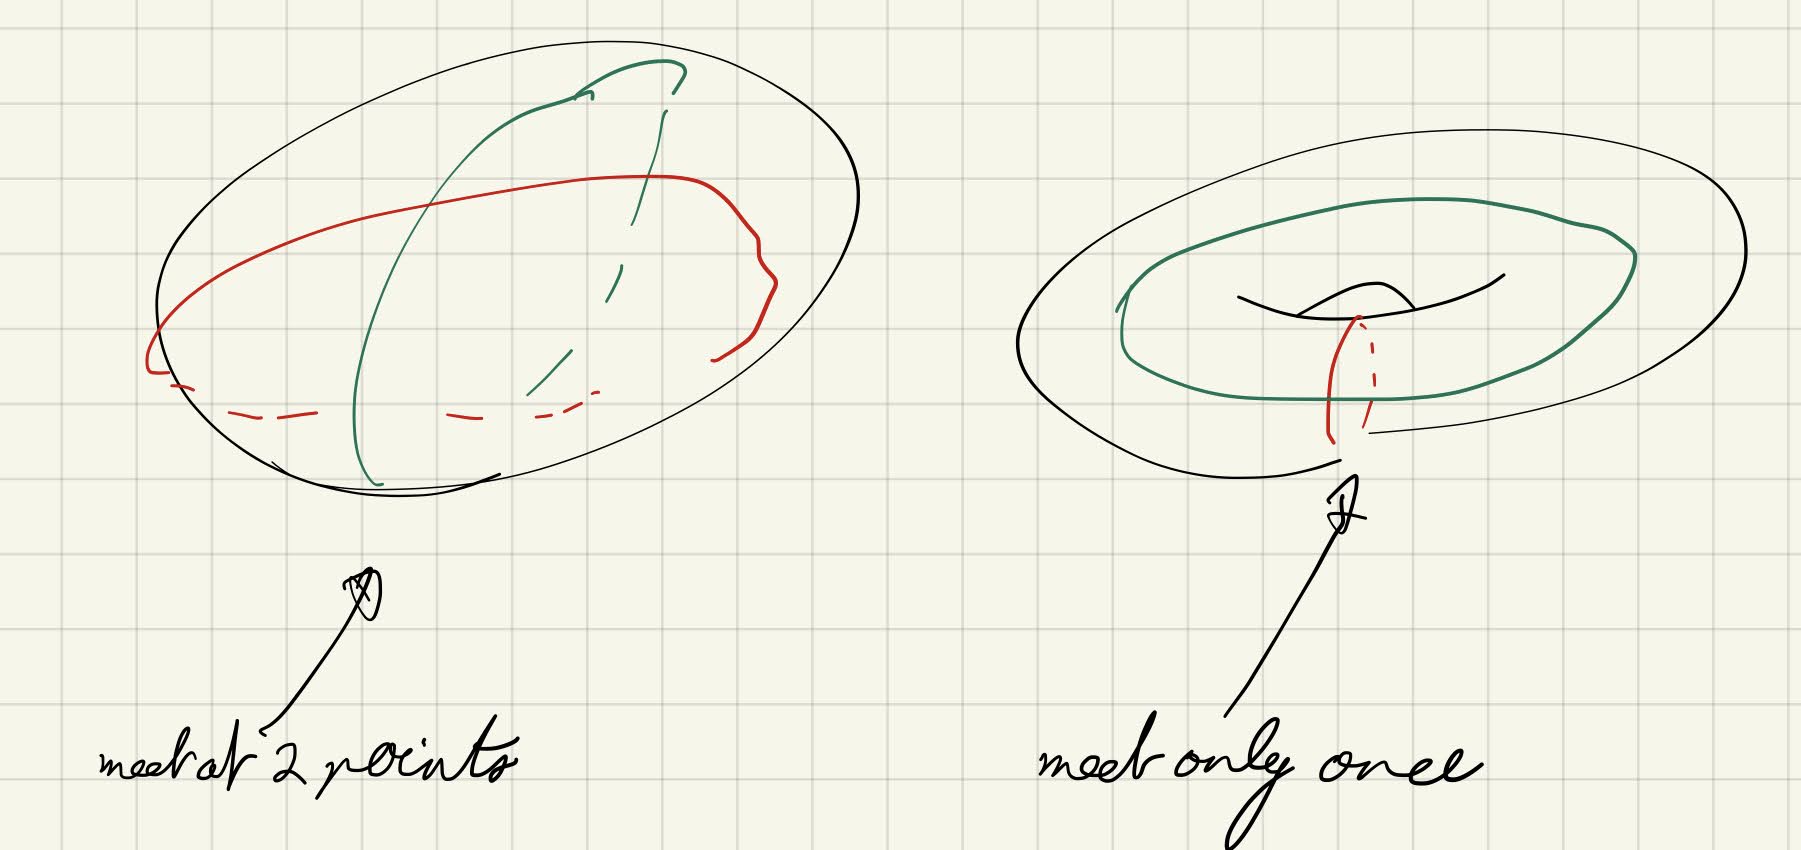 meet at 2 points
meet only once